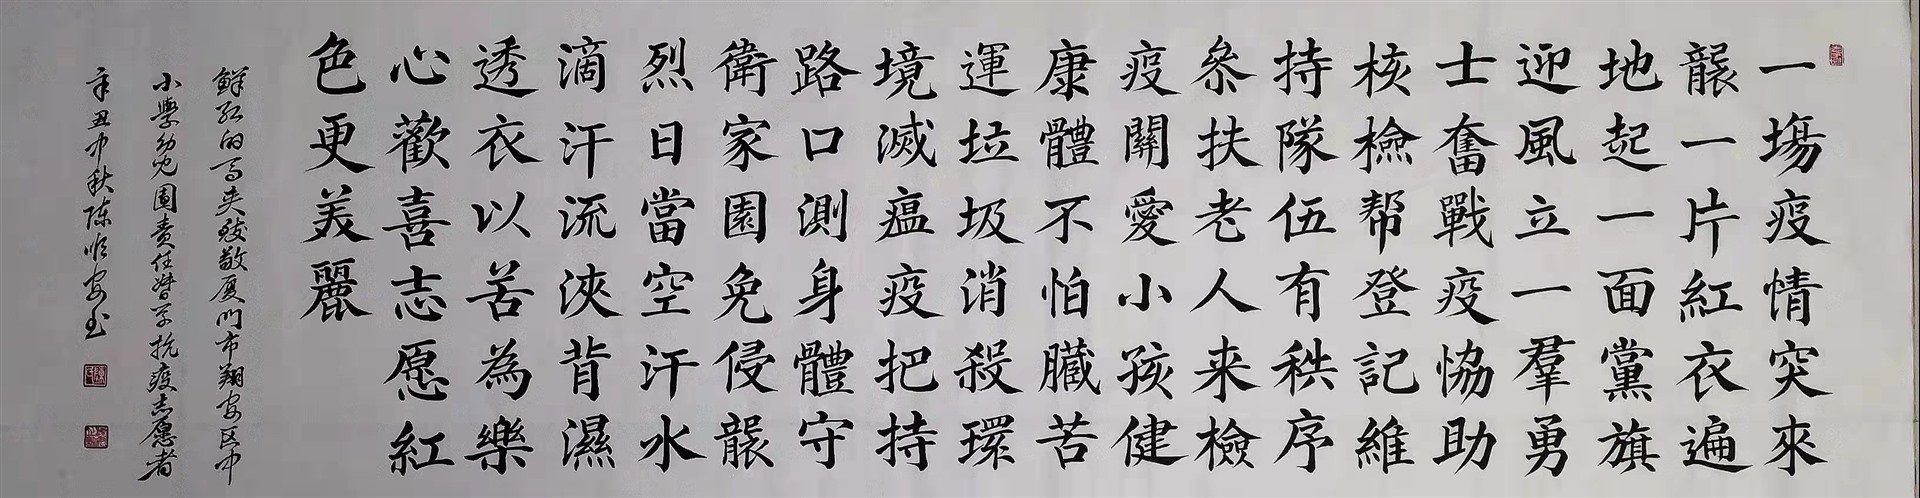 一場疫情突來
襲一片紅衣遍
地起一面黨旗
迎風立一羣勇
士奮戰疫恊助
核檢帮登記維
持隊伍有秩序
叅扶老人来檢
疫關愛小孩健
康體不怕臟苦
運垃圾消殺環
境滅瘟疫把持
路口測身體守
衛家園免侵襲
烈日當空汗水
滴汗流浹背濕
透衣以苦為樂
心歡喜志愿紅
色更美麗
鮮红的马夹致敬厦门市翔安区中
小學幼兒園责任督学抗疫志愿者
辛丑中秋陈顺安书